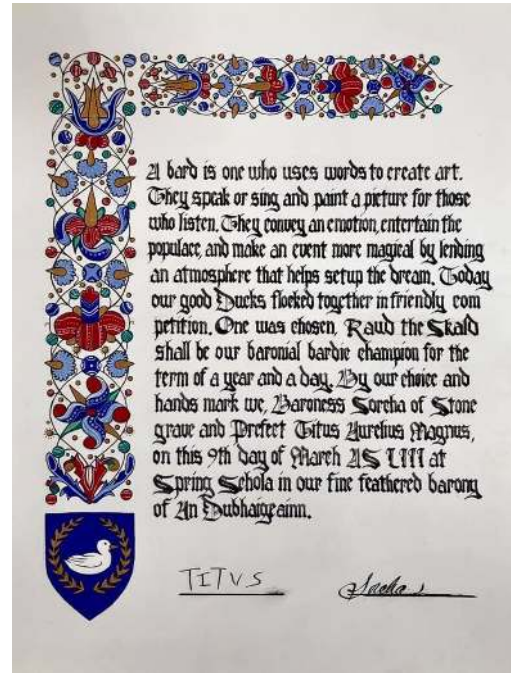 A bard is one who uses words to create art.
They speak or sing and paint a picture for those
who listen. They convey an emotion, entertain the
populace, and make an event more magical by lending
an atmosphere that helps setup the dream. Today
our good Ducks flocked together in friendly com
petition. One was chosen. Raud the Skald
shall be our baronial bardic champion for the
term of a year and a day. By our choice and
hands mark we, Baroness Sorcha of Stone
grave and Prefect Titus Aurelius Magnus,
on this 9th day of March AS LIII at
Spring Schola in our fine feathered barony
of An Dubhaigeainn.
TITVS